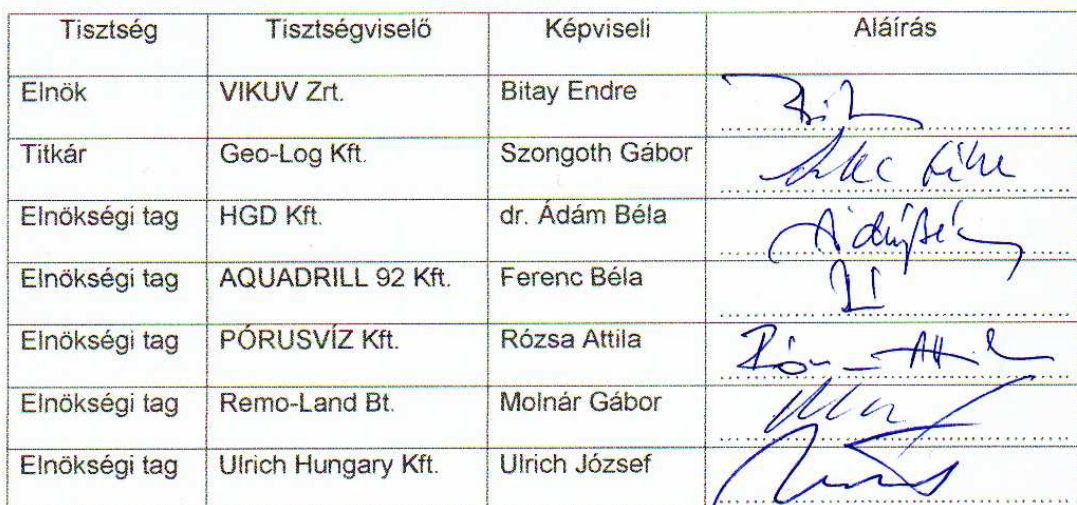 Tisztség Tisztségviselő Képviseli Aláírás
Elnök VIKUV Zrt. Bitay Endre
Titkár Geo-Log Kft. Szongoth Gábor
Elnökségi tag HGD Kft. dr. Ádám Béla
Elnökségi tag AQUADRILL 92 Kft. Ferenc Béla
Elnökségi tag PÓRUSVÍZ Kft. Rózsa Attila
Elnökségi tag Remo-Land Bt. Molnár Gábor
Elnökségi tag Ulrich Hungary Kft. Ulrich József